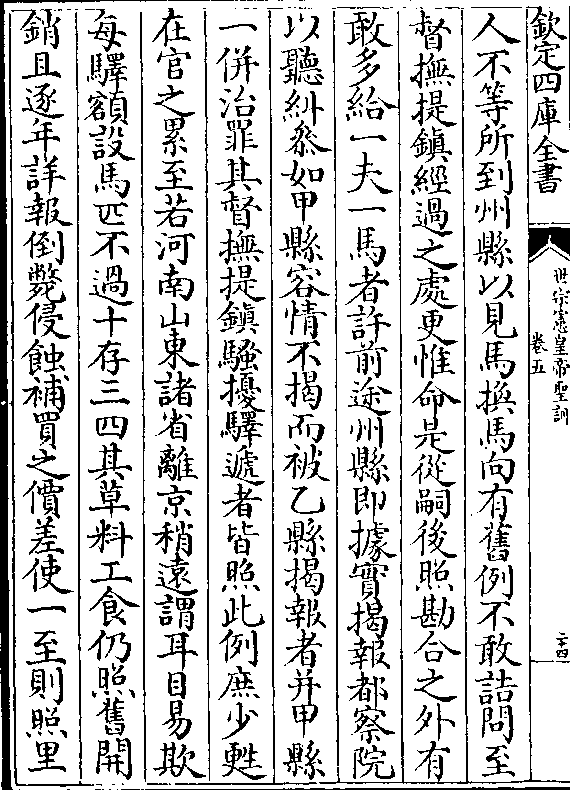 欽定四庫全書
世宗憲皇帝聖訓
卷五
二十四
人不等所到州縣以見馬換馬向有舊例不敢詰問至
督撫提鎮經過之處更惟命是從嗣後照勘合之外有
敢多給一夫一馬者許前途州縣即據實揭報都察院
以聽糾叅如甲縣容情不揭而被乙縣揭報者并甲縣
一併治罪其督撫提鎮騷擾驛遞者皆照此例庶少甦
在官之累至若河南山東諸省離京稍遠謂耳目易欺
每驛額設馬匹不過十存三四其草料工食仍照舊開
銷且逐年詳報倒斃侵蝕補買之價差使一至則照里